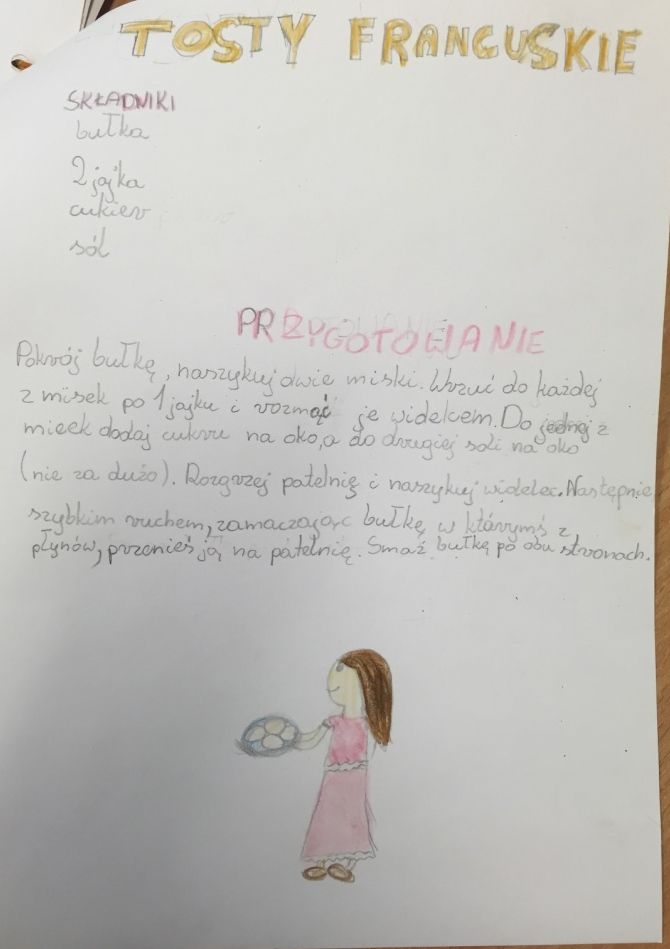 TOSTY FRANCUSKIE
SKŁADNIKI
bułka
2 jajka
cukier
sól
PRZYGOTOWANIE
Pokrój bułkę, naszykuj dwie miski. Wrzuć do każdej
z misek po 1 jajku i rozmąć je widelcem. Do jednej z
misek dodaj cukru na oko, a do drugiej soli na oko
(nie za dużo). Rozgrzej patelnię i naszykuj widelec. Następnie
szybkim ruchem, zamaczając bułkę w którymś z
płynów, przenieś ją na patelnię. Smaż bułkę po obu stronach.